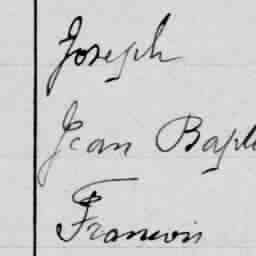 Joseph
Jean Bapt
Francois